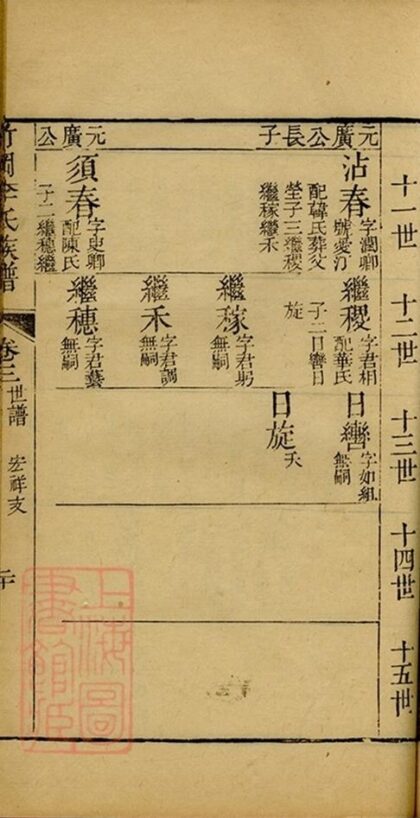 十一世
十二世
十三世
十四世
十五世
元廣公長子
沾春
字潤卿
號愛汀
配韓氏葬父
塋子三繼稷
繼稼繼禾
元廣公
須春
字史卿
配陳氏
子二繼穗繼
繼稷
字君相
配華氏
子二日轡日
旋
繼稼
字君躬
無嗣
繼禾
字君調
無嗣
繼穗
字君藝
無嗣
日轡
字如組
無嗣
日旋
夭
竹間李氏族譜
卷三
世譜
宏祥支
二十
上海圖書館藏